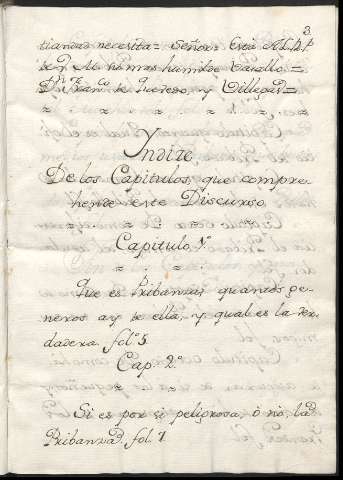 3
tiandad necesita = Señor = Besa A. L. R. P.
de V. M. su mas humilde Vasallo =
Dn. Fran.co de Quevedo, y Villegas =
Yndice,
De los Capitulos, que compre-
hende este Discurso
Capitulo 1º
Que es Pribanza, quantos ge-
neros ay de ella, y qual es la ver-
dadera. fol.º 5.
Cap.º 2.º
Si es por si peligrosa, ó nó, la
Pribanza. fol. 7.